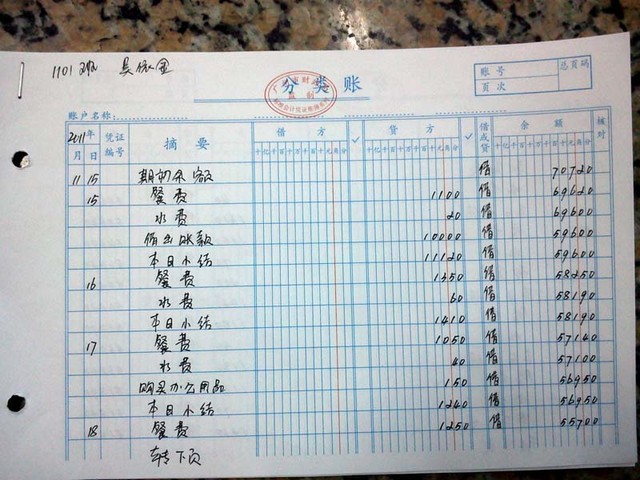 1101班
分类账
账号
总页码
页次
账户名称:
2011年 凭证编号 摘要 借方 ✓ 贷方 ✓ 借或贷 余额 核对
月 日 十亿千百十万千百十元角分 十亿千百十万千百十元角分 十亿千百十万千百十元角分
11 15 期初余额 借 70720
15 餐费 1100 借 69620
水费 20 借 69600
借出账款 10000 借 59600
本日小结 11120 借 59600
16 餐费 1350 借 58250
水费 60 借 58190
本日小结 1410 借 58190
17 餐费 1050 借 57140
水费 40 借 57100
购买办公用品 150 借 56950
本日小结 1240 借 56950
18 餐费 1250 借 55700
转下页